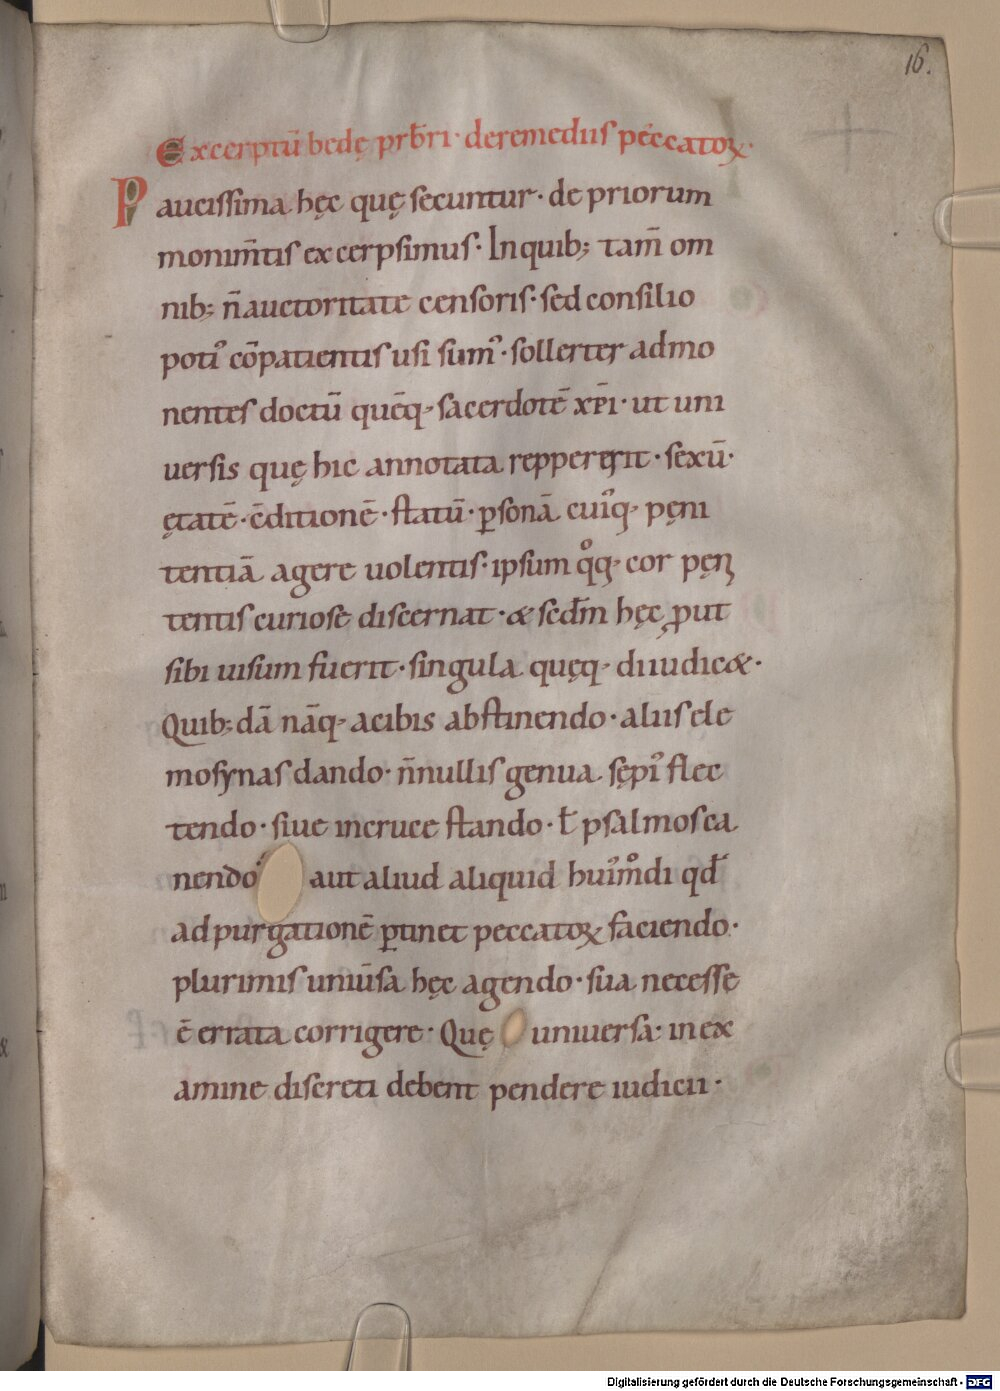 16.
Excerptū bedę prb̄ri· deremediis peccatoꝝ·
Paucissima hęc quę secuntur· de priorum
monim̄tis excerpsimus· Inquib; tam̄ om
nib; n̄ auctoritate censoris· sed consilio
poti᾽ cōpatientis usi sum᾽· sollerter admo
nentes doctū quēq; sacerdotē xp̄i· ut uni
uersis quę hic annotata reppererit· sexū·
ętatē· c̄ditionē· statū· ꝑsonā cui᾽q; pęni
tentiā agere uolentis· ipsum qͦq; cor pęni
tentis curiose discernat· & scd̄m hęc ꝓut
sibi uisum fuerit· singula quęq; diiudic&·
Quib;dā nāq; acibis abstinendo· aliis ele
mosynas dando· n̄nullis genua sępi᾽ flec
tendo· siue incruce stando· ł psalmos ca
nendo· aut aliud aliquid hui᾽mͦdi qd̄
ad purgationē ꝑtinet peccatoꝝ faciendo·
plurimis uniūsa hęc agendo· sua necesse
ē errata corrigere· Quę uniuersa· in ex
amine discreti debent pendere iudicii·
Digitalisierung gefördert durch die Deutsche Forschungsgemeinschaft - DFG